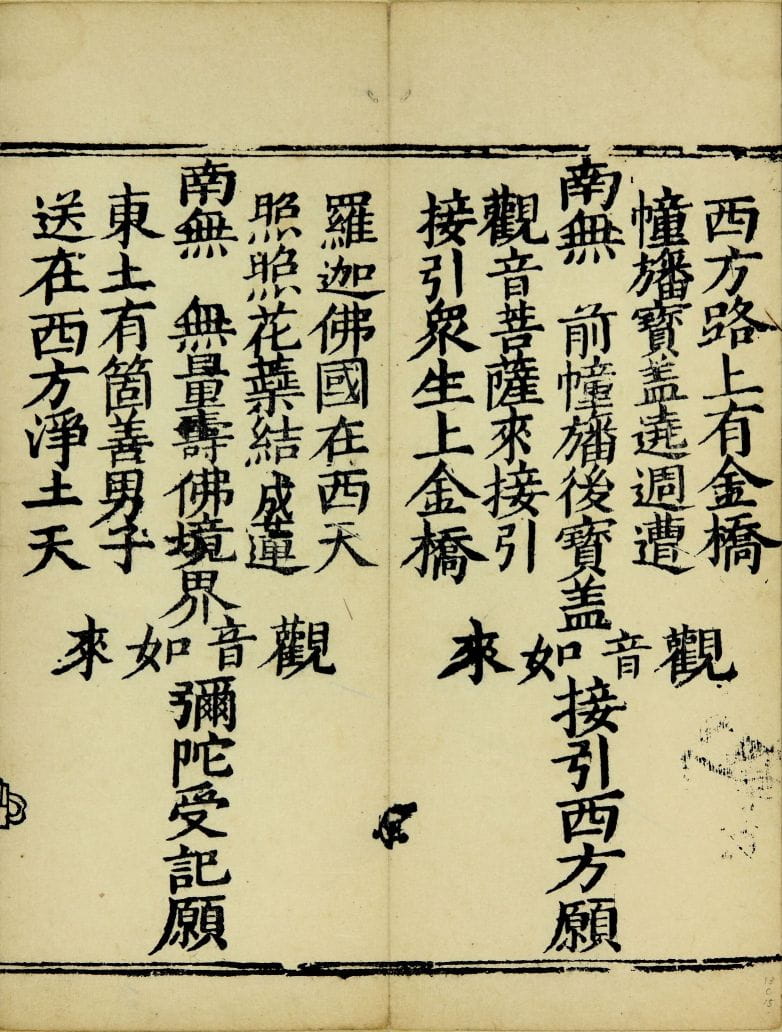 西方路上有金橋
幢旛寳盖遶週遭
南無 前幢旛後寳盖 接引西方願
觀音菩薩來接引
接引衆生上金橋
觀音如來
羅迦佛國在西天
照照花葉結成蓮
南無 無量壽佛境界 彌陀受記願
東土有箇善男子
送在西方淨土天
觀音如來